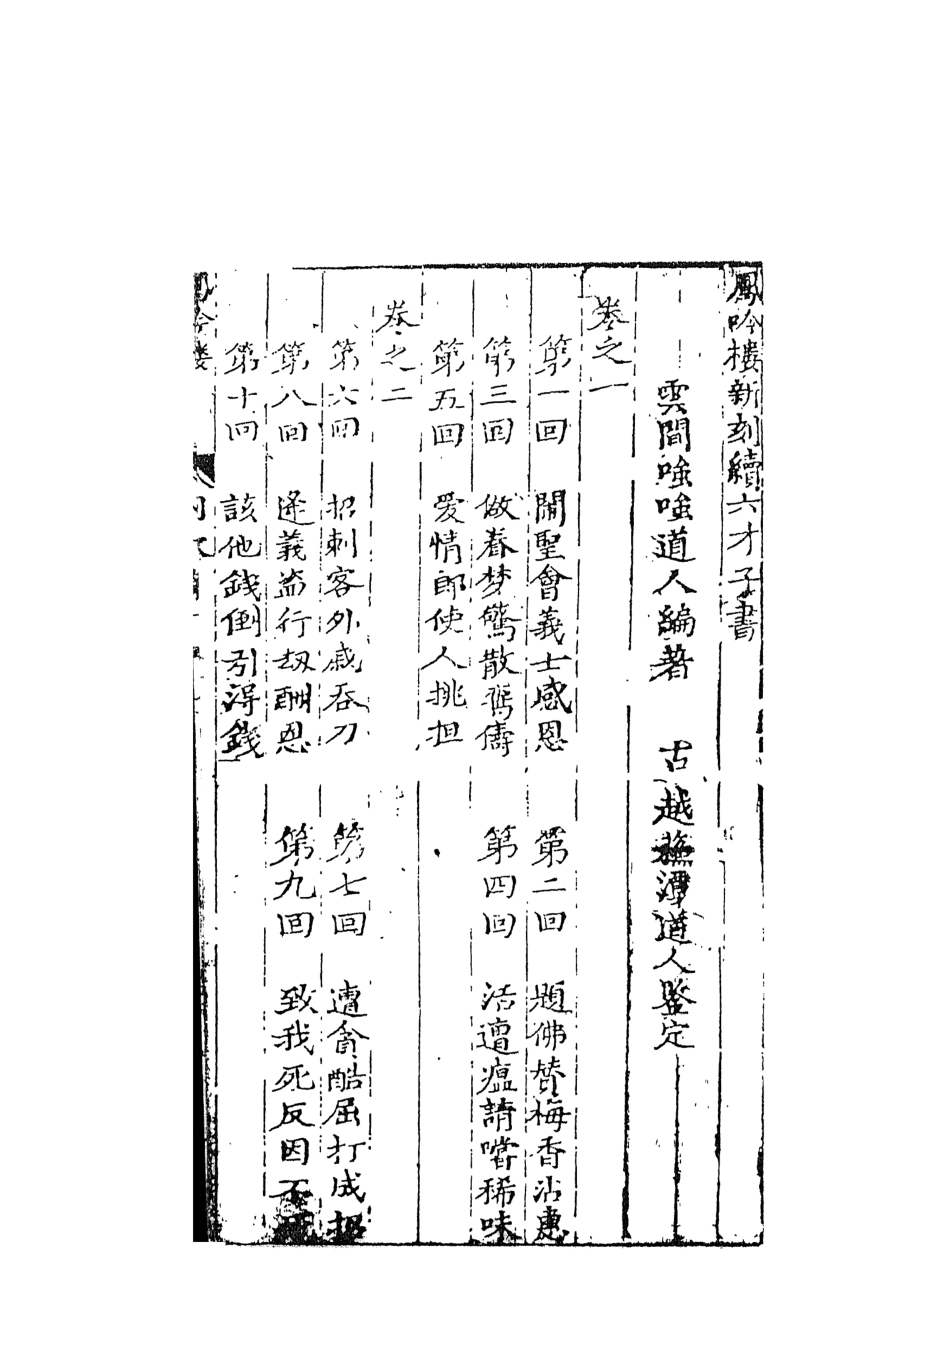 鳳吟樓新刻續六才子書
雲間嗤嗤道人編著 古越蘓潭道人鑒定
卷之一
第一回 鬧聖會義士感恩 第二回 題佛贊梅香沾惠
第三回 做春梦驚散鴛儔 第四回 活遭瘟請嚐稀味
第五回 爱情郎使人挑担
卷之二
第六回 招刺客外戚吞刀 第七回 遭貪酷屈打成招
第八回 逢義盗行刼酬恩 第九回 致我死反因不死
第十回 該他錢倒引得錢
鳳吟楼 目次